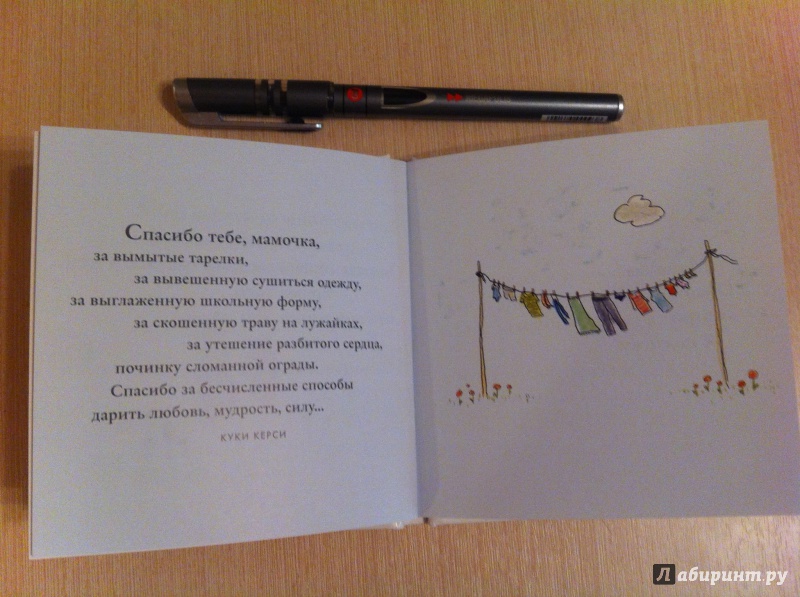 Спасибо тебе, мамочка,
за вымытые тарелки,
за вывешенную сушиться одежду,
за выглаженную школьную форму,
за скошенную траву на лужайках,
за утешение разбитого сердца,
починку сломанной ограды.
Спасибо за бесчисленные способы
дарить любовь, мудрость, силу...
КУКИ КЕРСИ
Лабиринт.ру